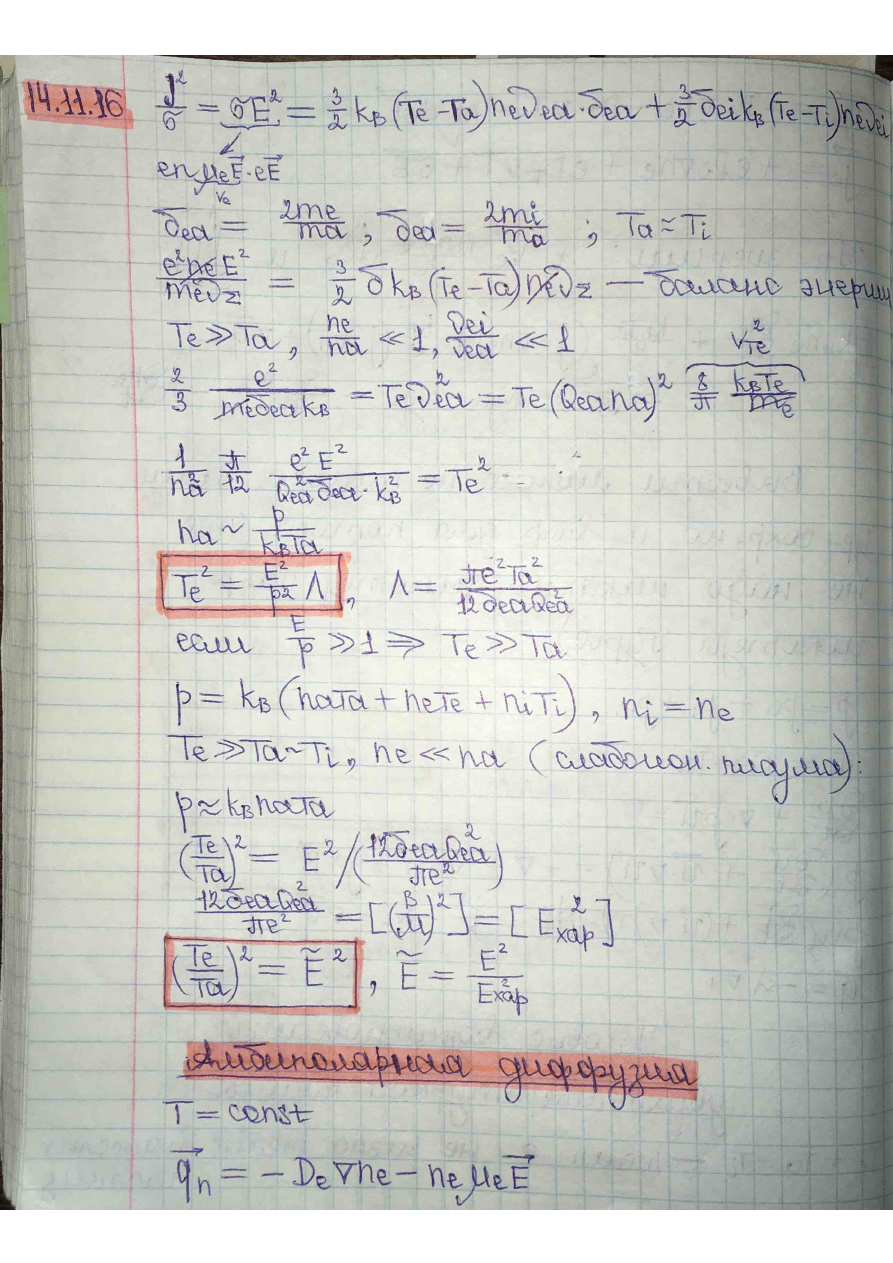 14.11.16
j²/σ = σE² = 3/2 k_B (Te − Ta) ne νea · δea + 3/2 δei k_B (Te − Ti) ne νei
en μe E⃗ · eE⃗
ve
δea = 2me/ma ; δea = 2mi/ma ; Ta ≈ Ti
e² ne E² / me ν_Σ = 3/2 δ k_B (Te − Ta) ne ν_Σ — баланс энергии
Te ≫ Ta, ne/na ≪ 1, νei/νea ≪ 1 v_Te²
2/3 e²/(me δea k_B) = Te νea² = Te (Qea na)² 8/π k_B Te/me
1/na² π/12 e² E²/(Qea² δea · k_B²) = Te²
na ~ p/(k_B Ta)
Te² = E²/p² Λ, Λ = πe² Ta²/(12 δea Qea²)
если E/p ≫ 1 ⇒ Te ≫ Ta
p = k_B (na Ta + ne Te + ni Ti), ni = ne
Te ≫ Ta ~ Ti, ne ≪ na (слабоион. плазма):
p ≈ k_B na Ta
(Te/Ta)² = E² / (12 δea Qea²/πe²)
12 δea Qea²/πe² = [(В/м)²] = [E²хар]
(Te/Ta)² = Ẽ², Ẽ = E²/E²хар
Амбиполярная диффузия
T = const
q⃗n = − De ∇ne − ne μe E⃗